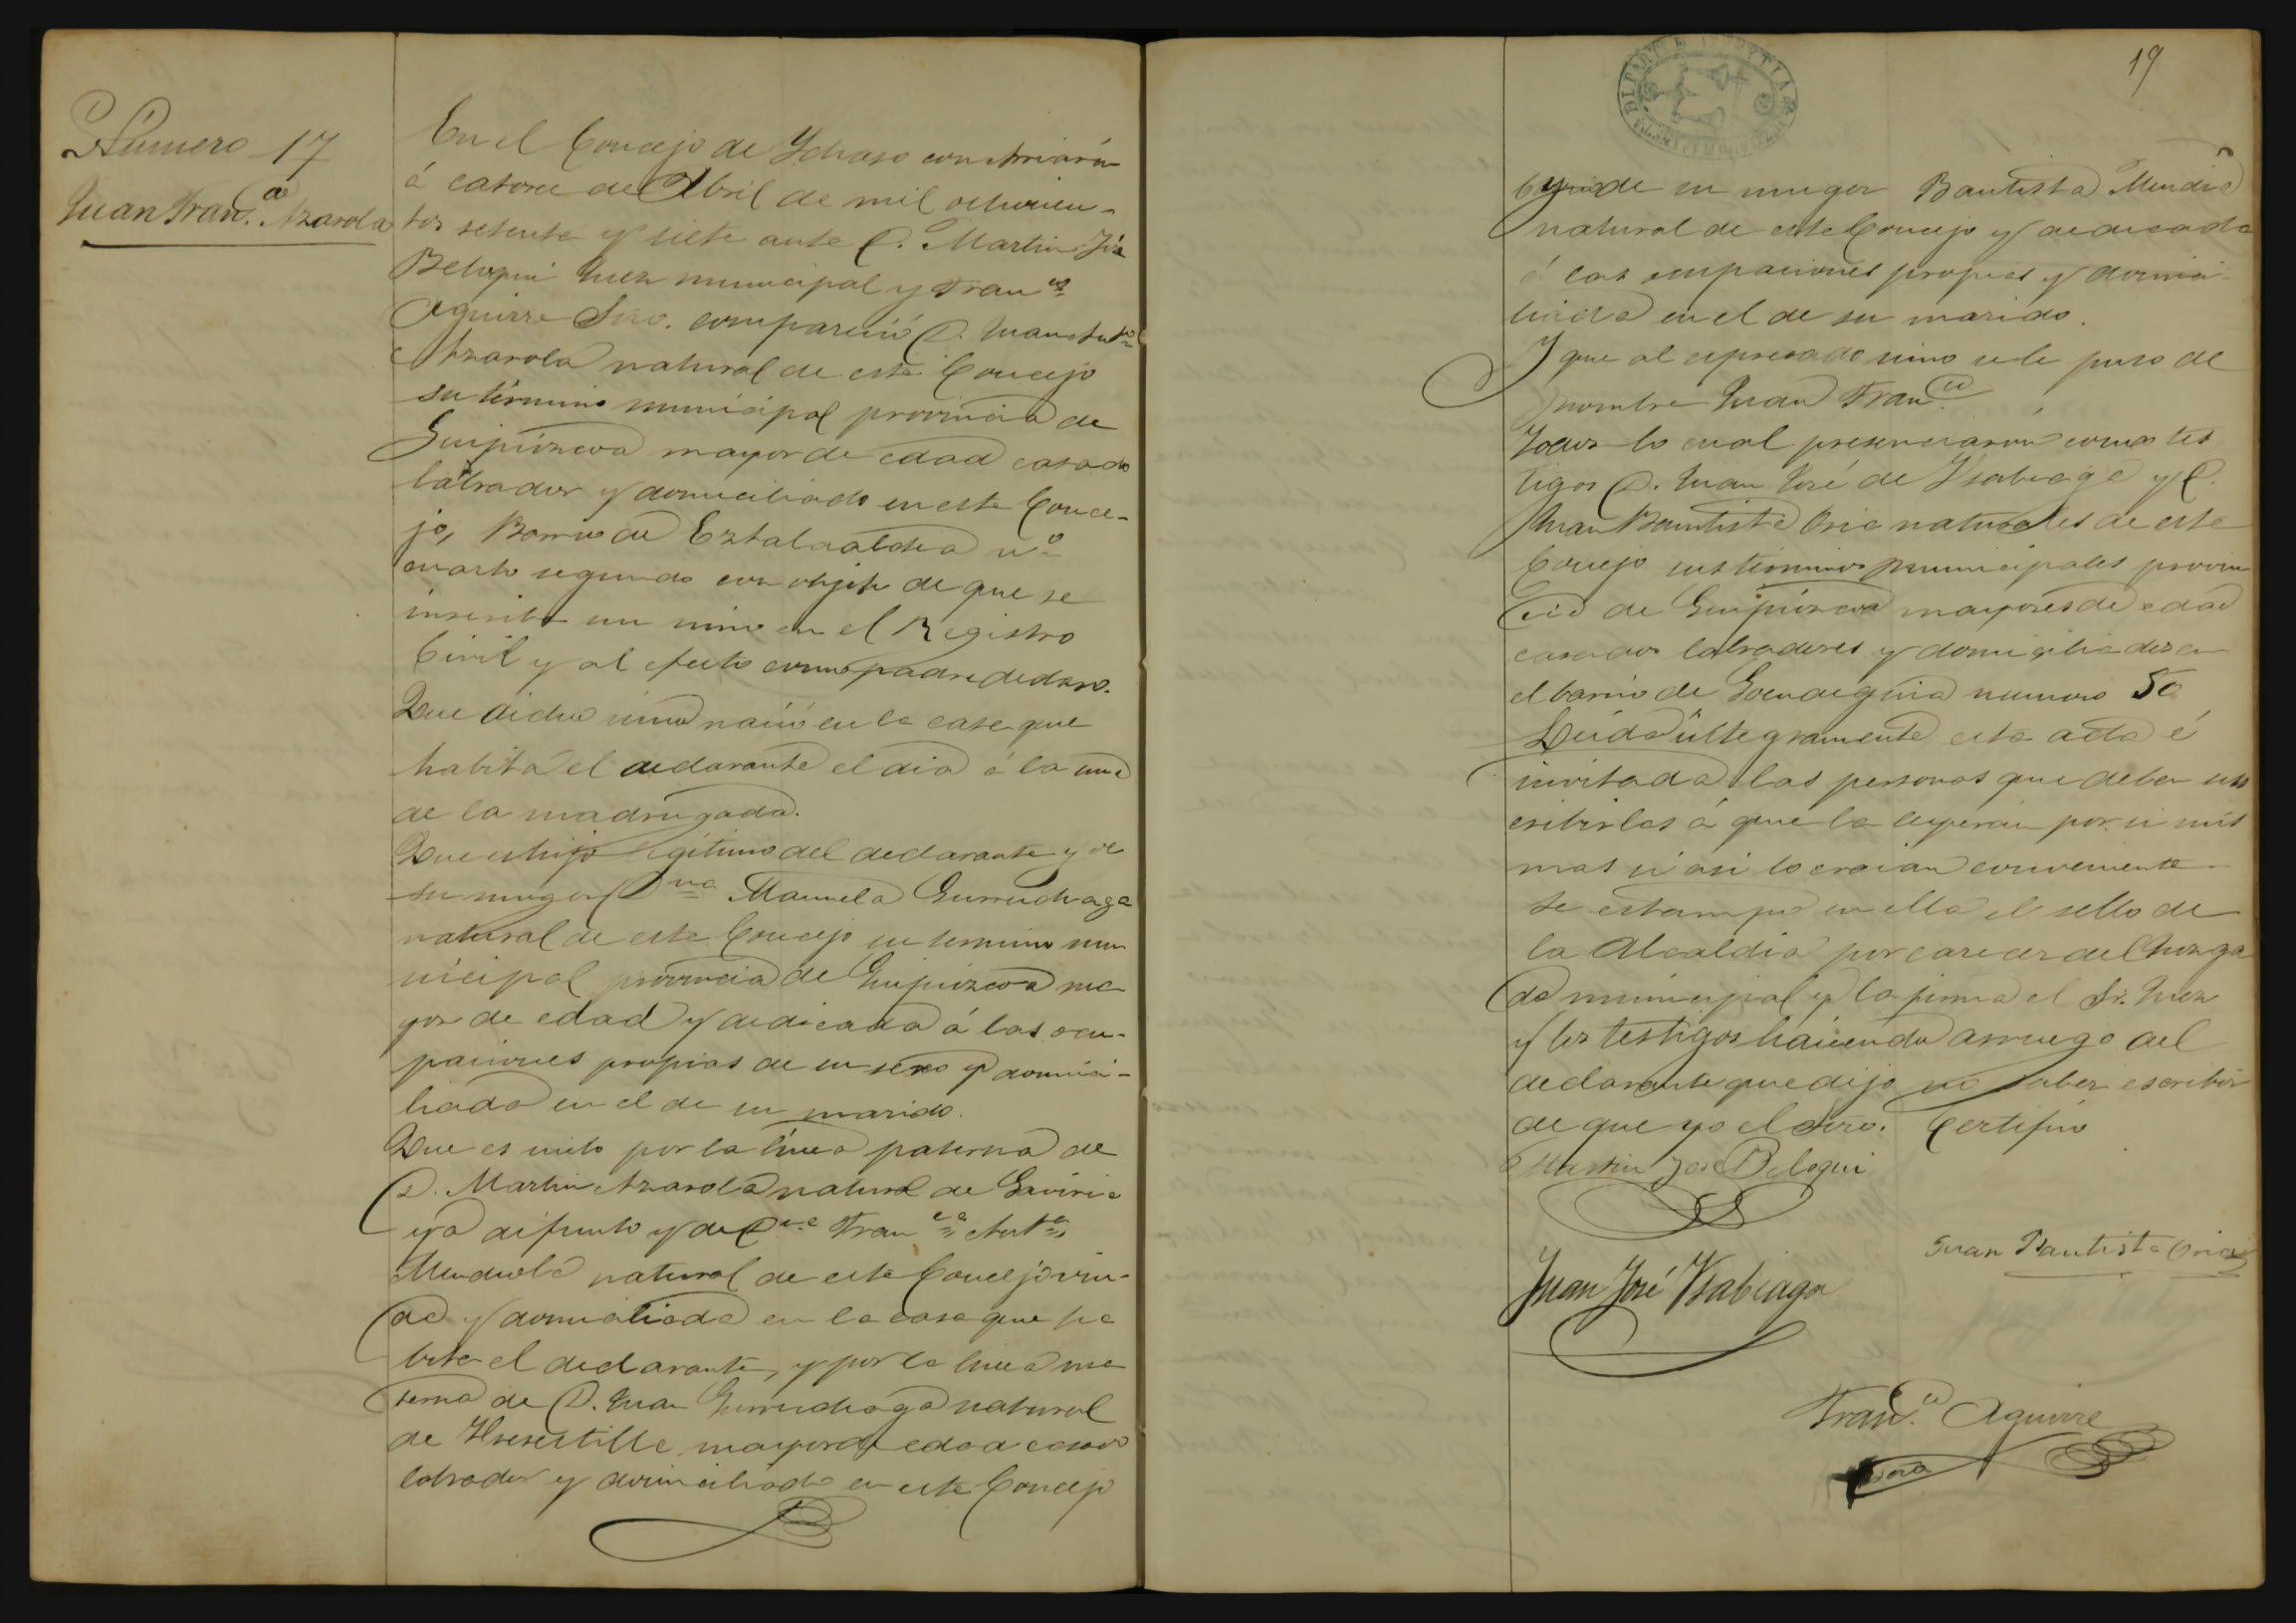 Número 17
Juan Fran.co Azarola
En el Concejo de Ychaso con Arriarán
á catorce de Abril de mil ochocien-
tos setenta y siete ante D. Martin José
Beloqui Juez municipal y Franco
Aguirre Srio. compareció D. Juan Anto
Azarola natural de este Concejo
su término municipal provincia de
Guipúzcoa mayor de edad casado
labrador y domiciliado en este Conce-
jo, Barrio de no
cuarto segundo con objeto de que se
inscriba un nino en el Registro
Civil y al efecto como padre declaro.
Que dicho nino nació en la casa que
habita el declarante el dia á la una
de la madrugada.
Que es hijo legítimo del declarante y de
su muger Dna Manuela Gurruchaga
natural de este Concejo su termino mu
nicipal provincia de Guipúzcoa ma
yor de edad y dedicada á las ocu-
paciones propias de su sexo y domici-
liada en el de su marido.
Que es nieto por la línea paterna de
D. Martin Azarola natural de Gaviria
ya difunto y de Dna Franca Anta
Mendiola natural de este Concejo viu-
da y domiciliada en la casa que ha
bita el declarante, y por la linea ma
terna de D. Juan Gurruchaga natural
de mayor de edad casado
labrador y domiciliado en este Concejo
19
y de su muger Bautista
natural de este Concejo y dedicada
á las ocupaciones propias y domici-
liada en el de su marido.
Y que al expresado nino se le puso de
nombre Juan Fran.co
Todos lo cual presenciaron como tes
tigos D. Juan José de Ysabiaga y D.
Juan Bautista Oria naturales de este
Concejo sus términos municipales provin
cia de Guipúzcoa mayores de edad
casados labradores y domiciliados en
el barrio de numero 50
Leida íntegramente esta acta é
invitada las personas que deben sus
cribirlas á que la leyeran por si mis
mas si asi lo creian conveniente
se estampó en ella el sello de
la Alcaldia por carecer del Juzga
do municipal y la firma el Sr. Juez
y los testigos haciendo arruego del
declarante que dijo no saber escribir
de que yo el Srio. Certifico
Martin José Beloqui
Juan Bautista Oria
Juan José Ysabiaga
Fran.co Aguirre